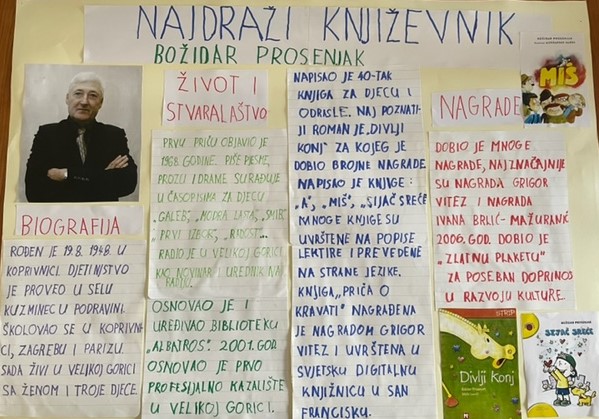 NAJDRAŽI KNJIŽEVNIK
BOŽIDAR PROSENJAK
BIOGRAFIJA
ROĐEN JE 19.8. 1948. U
KOPRIVNICI. DJETINJSTVO
JE PROVEO U SELU
KUZMINEC U PODRAVINI.
ŠKOLOVAO SE U KOPRIVNI
CI, ZAGREBU I PARIZU.
SADA ŽIVI U VELIKOJ GORICI
SA ŽENOM I TROJE DJECE.
ŽIVOT I
STVARALAŠTVO
PRVU PRIČU OBJAVIO JE
1968. GODINE. PIŠE PJESME,
PROZU I DRAME. SURAĐUJE
U ČASOPISIMA ZA DJECU
„GALEB", „MODRA LASTA", „SMIB"
„PRVI IZBOR", „RADOST"...
RADIO JE U VELIKOJ GORICI
KAO NOVINAR I UREDNIK NA
RADIU.
OSNOVAO JE I
UREĐIVAO BIBLIOTEKU
„ALBATROS". 2001.GOD.
OSNOVAO JE PRVO
PROFESIJALNO KAZALIŠTE
U VELIKOJ GORICI.
NAPISAO JE 40-TAK
KNJIGA ZA DJECU I
ODRASLE. NAJ POZNATI-
JI ROMAN JE „DIVLJI
KONJ" ZA KOJEG JE
DOBIO BROJNE NAGRADE.
NAPISAO JE KNJIGE:
„A", „MIŠ", „SIJAČ SREĆE"
MNOGE KNJIGE SU
UVRŠTENE NA POPISE
LEKTIRE I PREVEDENE
NA STRANE JEZIKE.
KNJIGA „PRIČA O
KRAVATI" NAGRAĐENA
JE NAGRADOM GRIGOR
VITEZ I UVRŠTENA U
SVJETSKU DIGITALNU
KNJIŽNICU U SAN
FRANCISKU.
NAGRADE
DOBIO JE MNOGE
NAGRADE, NAJZNAČAJNIJE
SU NAGRADA GRIGOR
VITEZ I NAGRADA
IVANA BRLIĆ-MAŽURANIĆ
2006.GOD. DOBIO JE
„ZLATNU PLAKETU"
ZA POSEBAN DOPRINOS
U RAZVOJU KULTURE.
BOŽIDAR PROSENJAK
MIŠ
STRIP
Divlji Konj
BOŽIDAR PROSENJAK
SIJAČ SREĆE